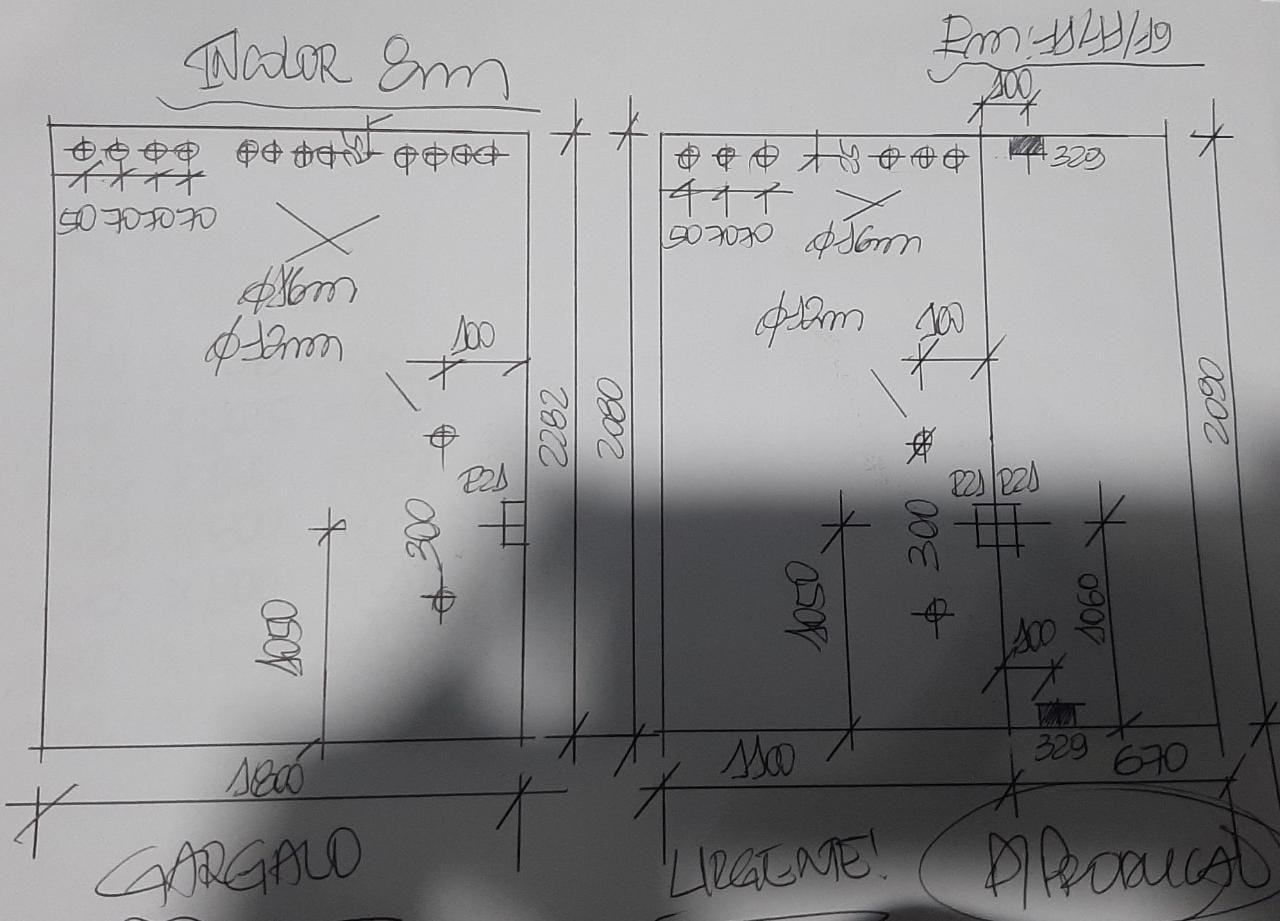 INCOLOR 8mm
Em: 11/11/19
100
329
50 70 70 70
50 70 70
Ø16mm
Ø16mm
Ø12mm
Ø12mm
100
100
2282
2080
2090
P21
P21 P21
300
300
1050
1050
1060
100
329
1800
1100
670
GARGALO
URGENTE!
P/PRODUÇÃO